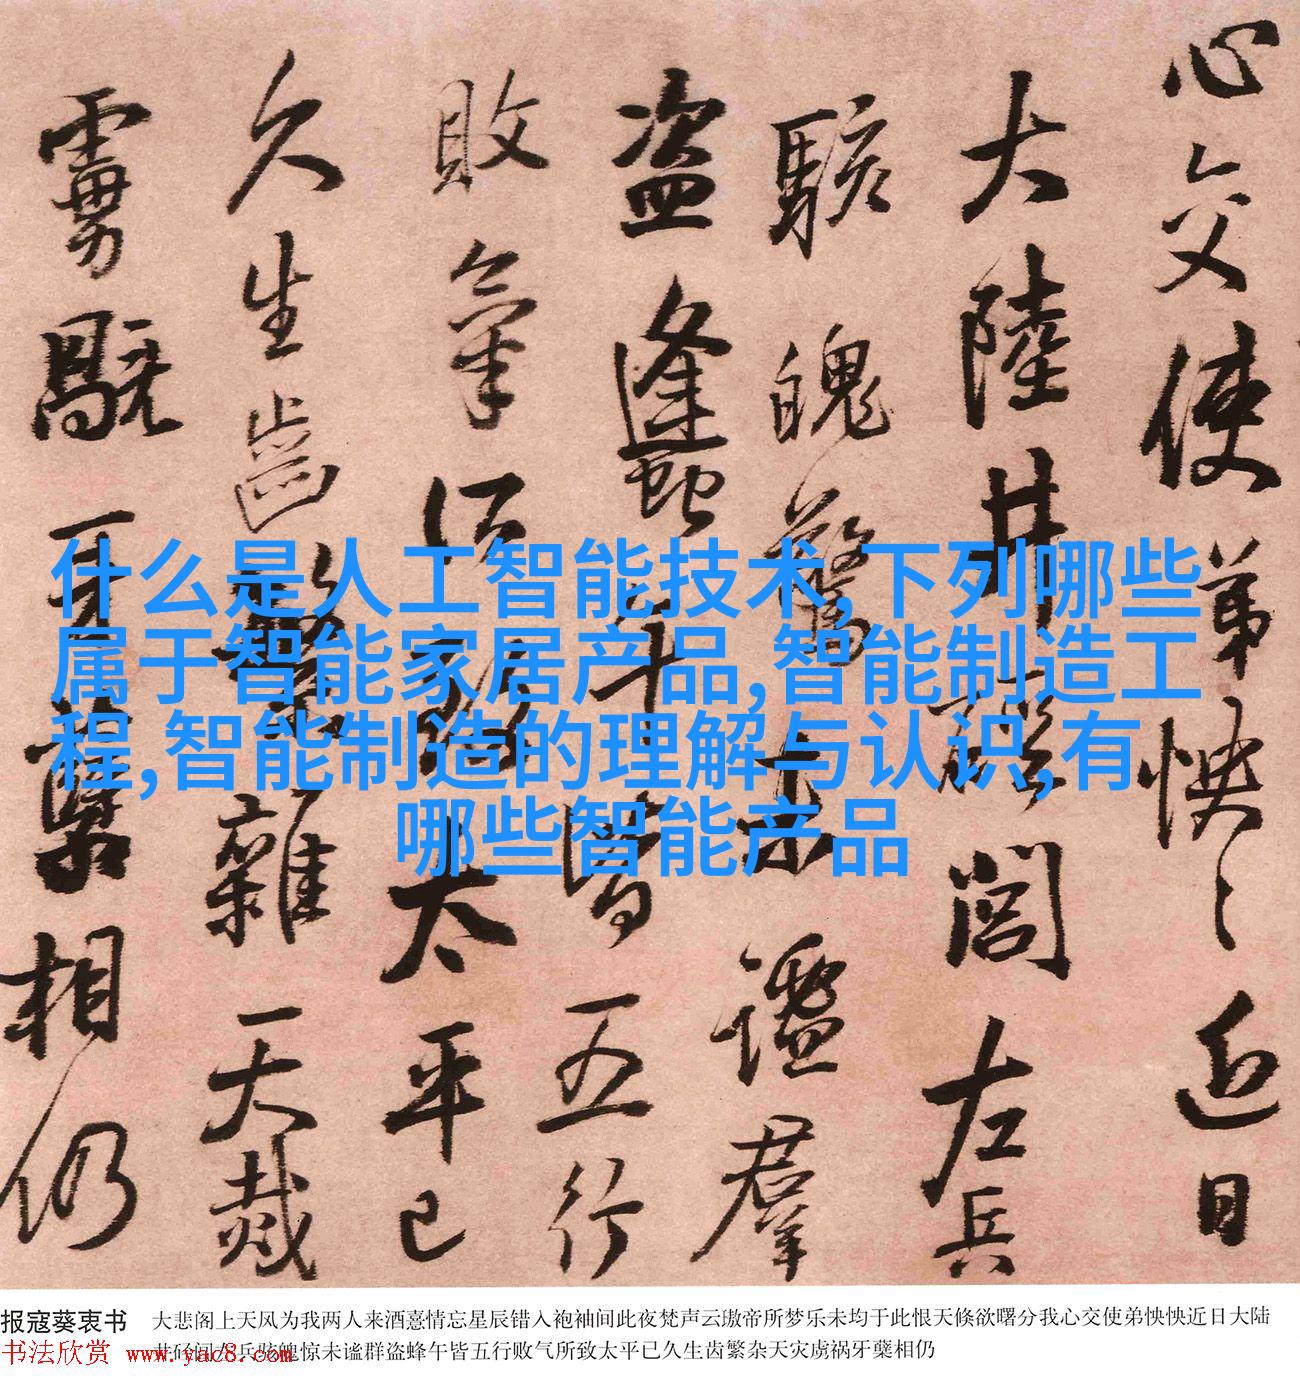 心交使弟怏〻近日
大陸井閤左兵
駭魄驚未謐羣
盗蠭午皆五行
敗氣所致太平已
久生齒繁雜天烖
牙蘖相仍
什么是人工智能技术,下列哪些
属于智能家居产品,智能制造工
程,智能制造的理解与认识,有
哪些智能产品
报寇葵衷书 大悲阁上天风为我两人来酒憙情忘星辰错入袍袖间此夜梵声云璈帝所梦乐未均于此恨天倏欲曙分我心交使弟怏怏近日大陆
书法欣赏 www.yac8.com
惊未谧群盗蜂午皆五行败气所致太平已久生齿繁杂天灾虏祸牙蘖相仍